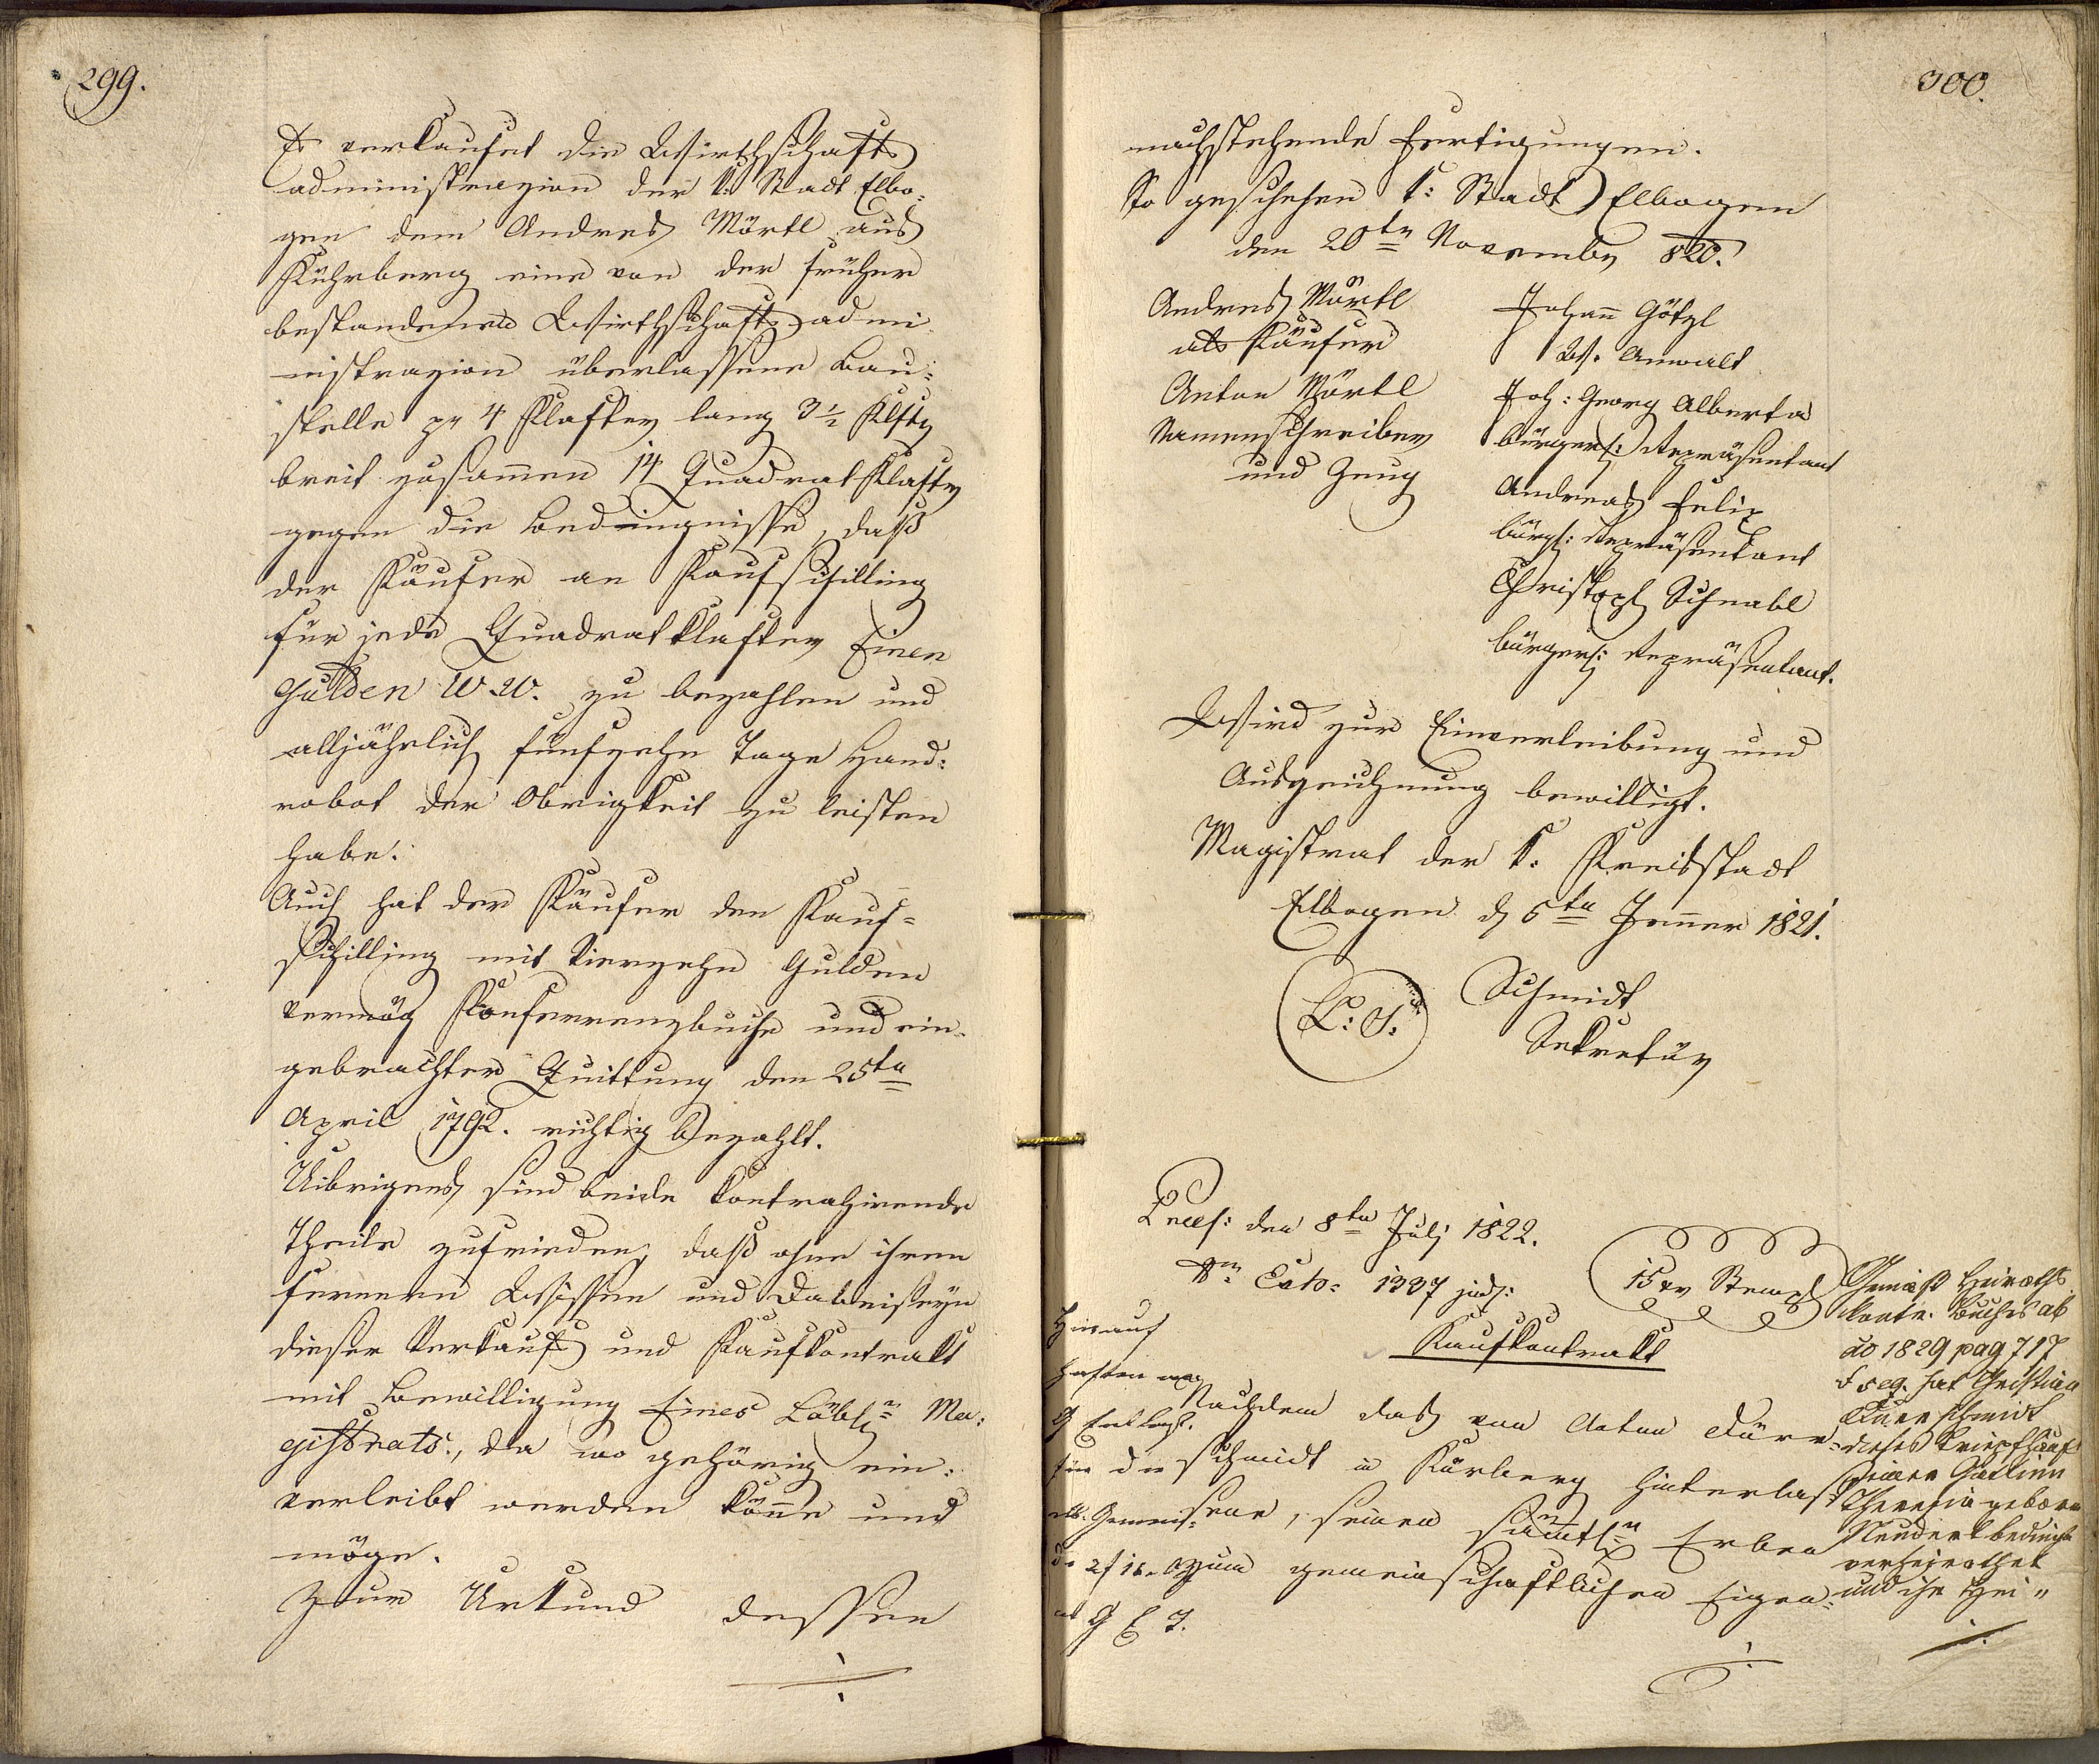 299.
Es verkaufet die Wirthschafts
administrazion der k: Stadt Elbo-
gen dem Andreas Mörtl aus
Kührberg eine von der früher
bestandenen Wirthschaftsadmi
nistrazion überlassene Bau-
stelle pr 4 Klafter lang 3½ Klftr
breit zusamen 14 Quadrat Klafter
gegen die Bedingnisse, daß
der Käufer an Kaufschilling
für jede Quadratklafter Einen
Gulden W. W. zu bezahlen und
alljährlich fünfzehn Tage Hand-
robot der Obrigkeit zu leisten
habe.
Auch hat der Käufer den Kauf-
schilling mit Vierzehn Gulden
vermög Konferrenzbuche und ein-
gebrachter Quittung den 25tn
April 1792. richtig bezahlt.
Uibrigens sind beide kontrahirende
Theile zufrieden, daß ohne ihren
fernern Wissen und Dabeiseyn
dieser Verkaufs und Kaufkontrakt
mit Bewilligung Eines Löbln Ma-
gistrats, da wo gehörig ein-
verleibt werden köne und
möge.
Zur Urkund dessen
300.
nachstehende Fertigungen.
So geschehen k: Stadt Elbogen
den 20tn November 820.
Andreas Mörtl
als Käufer
Anton Mörtl
Namenschreiber
und Zeug
Johann Götzl
W. Anwalt
Joh: Georg Alberta
bürgerl: Repräsentant
Andreas Felix
bürgl: Repräsentant
Christoph Schnabl
bürgerl: Repräsentant.
Wird zur Einverleibung und
Ausgeichnung bewilligt.
Magistrat der k. Kreisstadt
Elbogen d 5tn Jenner 1821.
L: S:
Schmidt
Sekretär
Præs: den 8tn Julj 1822.
Nro Exto: 1337 jud:
15 xr Stempl
Kaufkontrakt
Nachdem das von Anton Dürr-
schmidt in Kürberg hinterlas-
sene, seinen sämtln Erben
zum gemeinschaftlichen Eigen-
Hierauf
haften
für die
Gemäß Heiraths
kontr. Buches ab
ao 1829 pag 717
et seq. hat Christian
Dürrschmidt
dieses
seiner Gattinn
Theresia geborne
verheirathet
und ihr Hei"